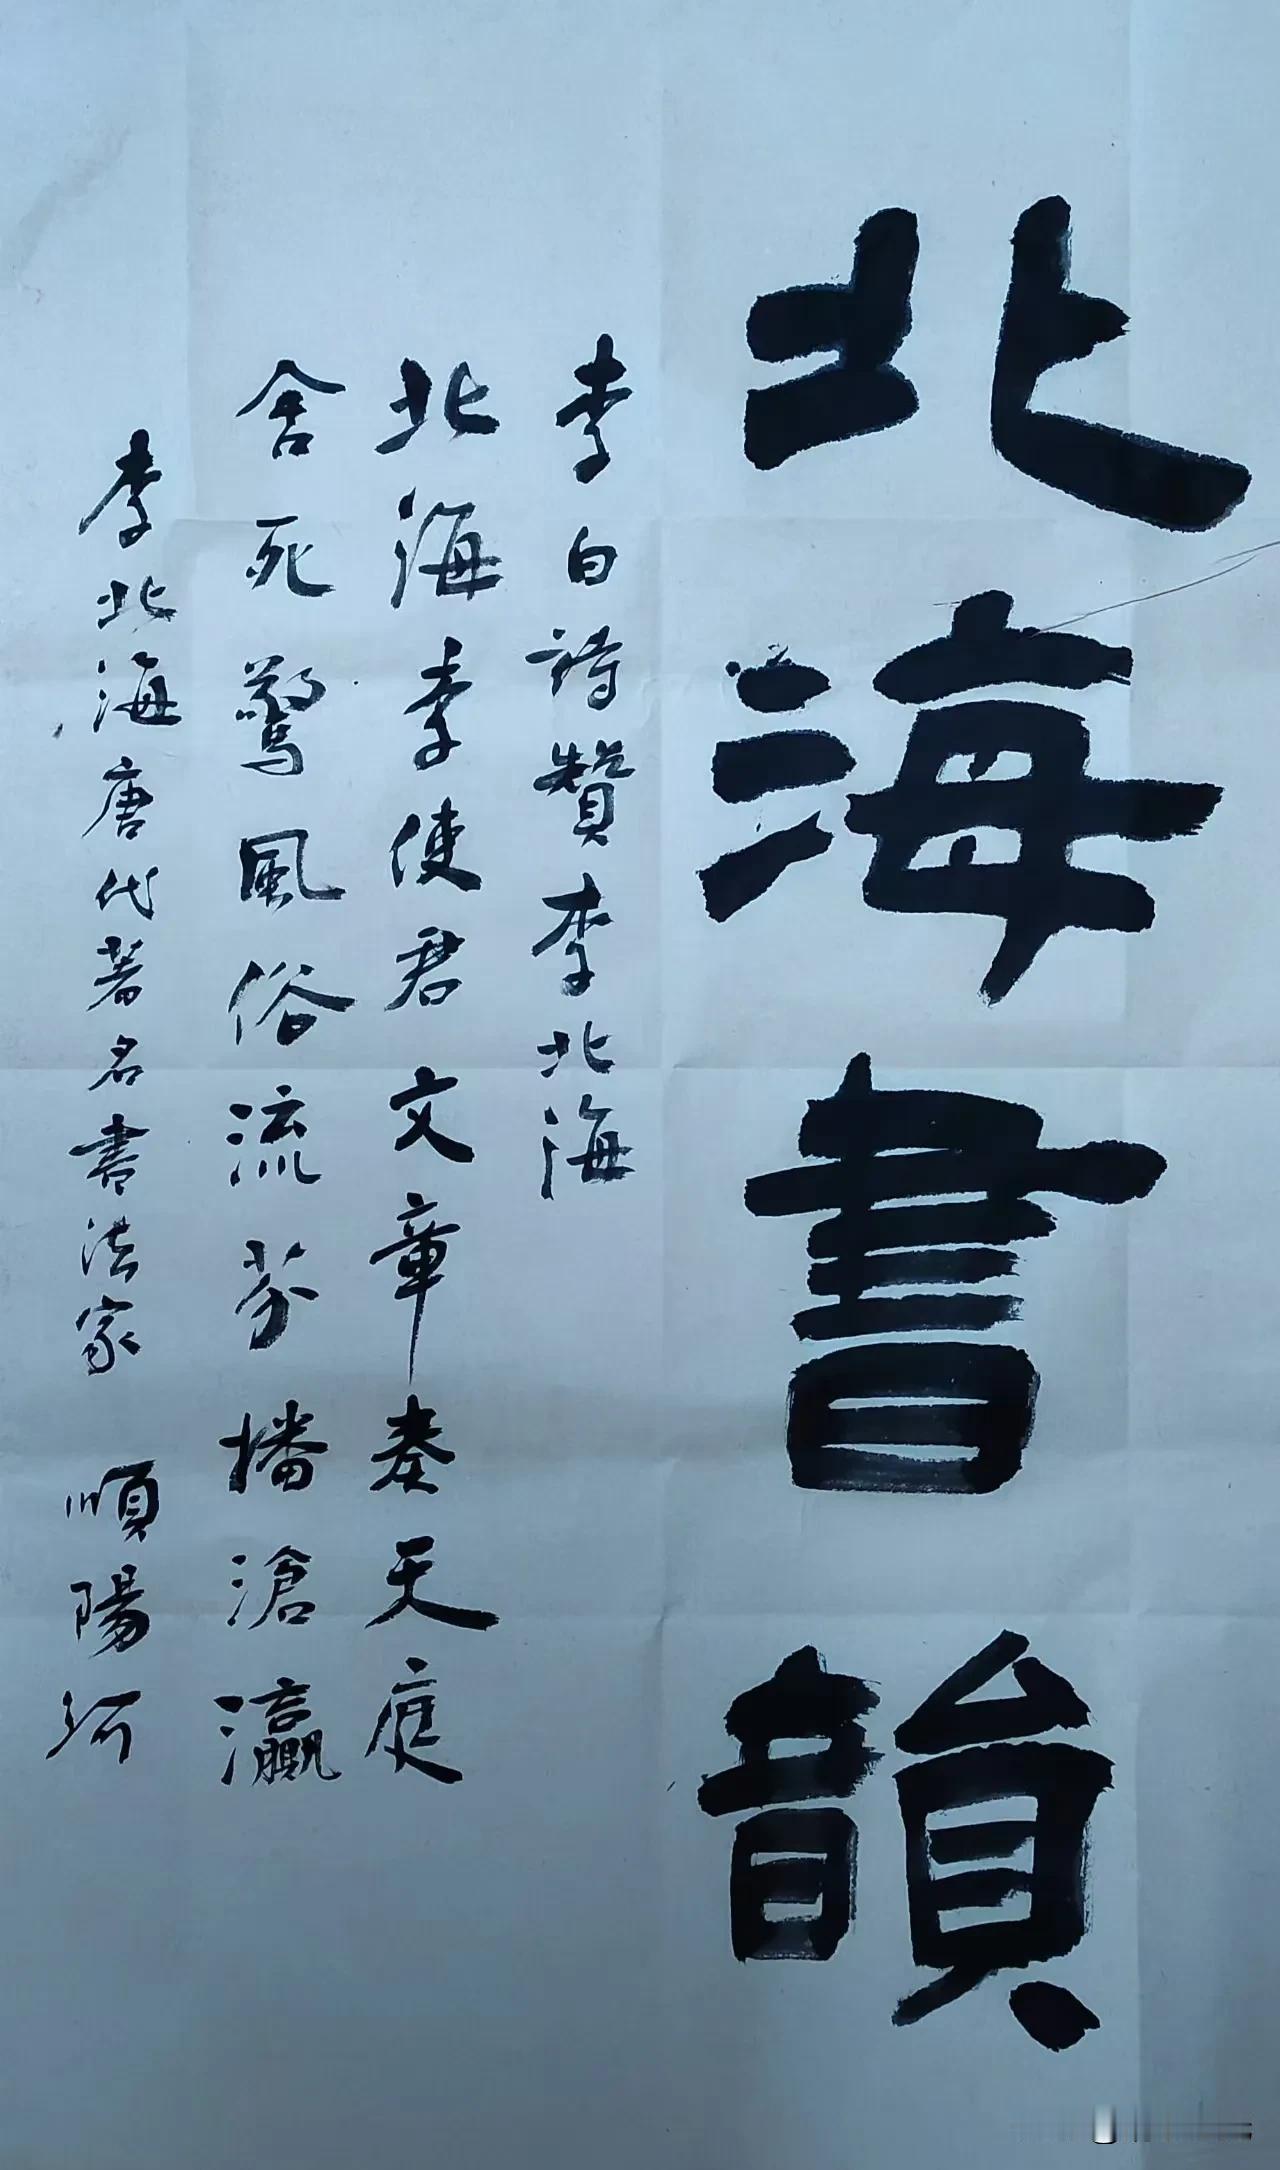 北海書韻
李白詩贊李北海
北海李使君文章奏天庭
舍死驚風俗流芬播滄瀛
李北海唐代著名書法家 順陽河